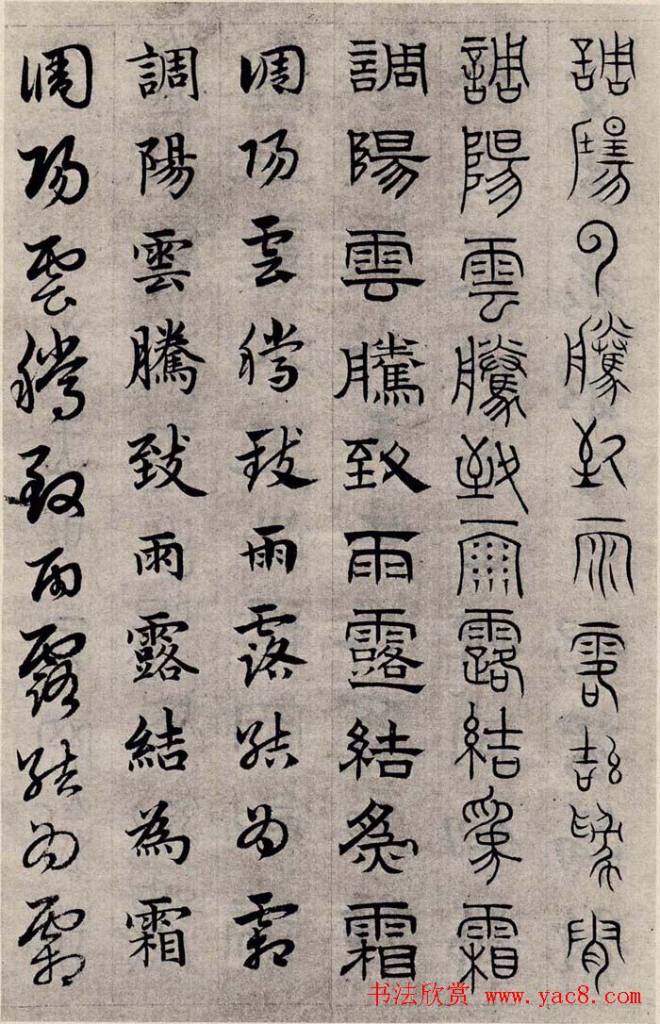 調陽雲騰致雨露結為霜
調陽雲騰致雨露結為霜
調陽雲騰致雨露結為霜
調陽雲騰致雨露結為霜
調陽雲騰致雨露結為霜
調陽雲騰致雨露結為霜
书法欣赏 www.yac8.com